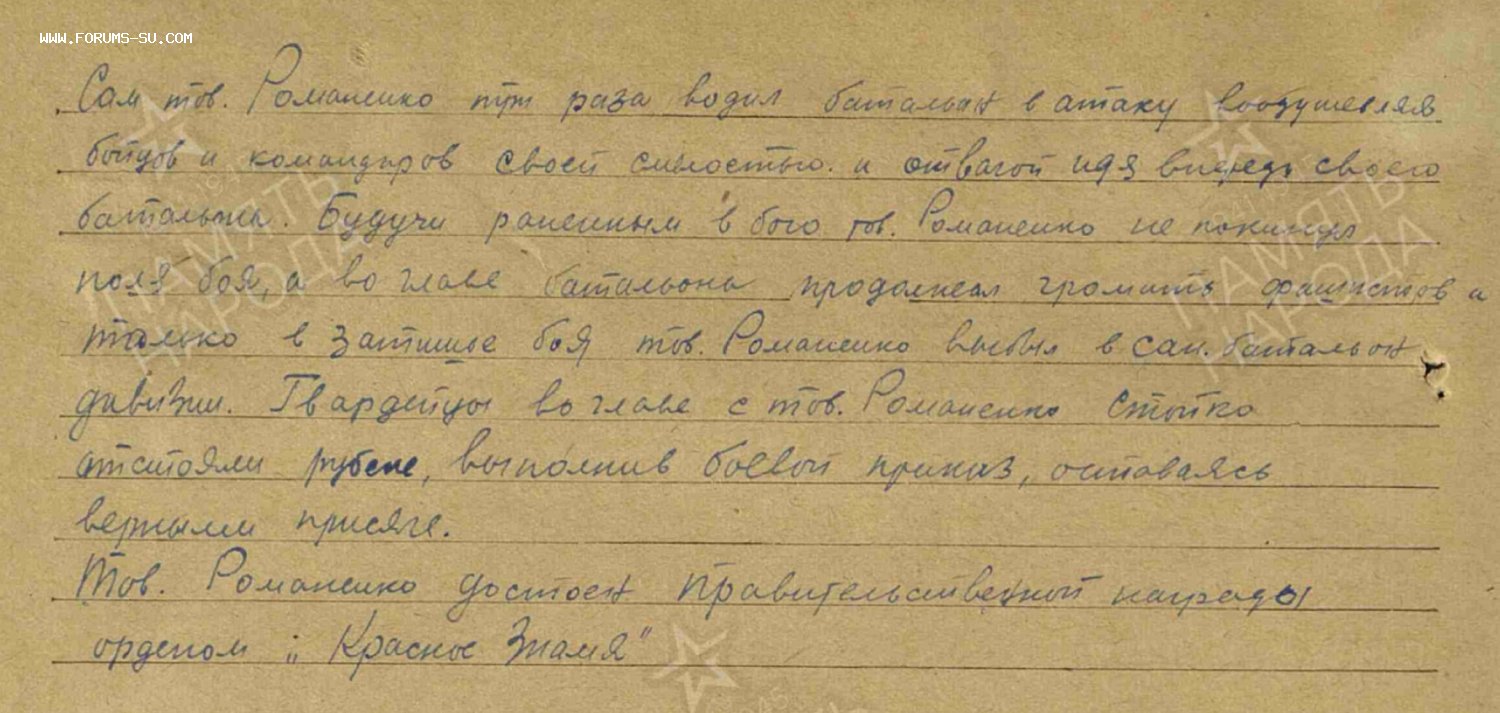 WWW.FORUMS-SU.COM
Сам тов. Романенко три раза водил батальон в атаку воодушевляя
бойцов и командиров своей смелостью. и отвагой идя впередь своего
батальона. Будучи раненным в бою тов. Романенко не покинул
поля боя, а во главе батальона продолжал громить фашистов и
только в затишье боя тов. Романенко выбыл в сан. батальон
дивизии. Гвардейцы во главе с тов. Романенко стойко
отстояли рубеж, выполнив боевой приказ, оставаясь
верными присяге.
Тов. Романенко достоен правительственной награды
орденом „Красное Знамя"
ПАМЯТЬ
НАРОДА
ПАМЯТЬ
НАРОДА